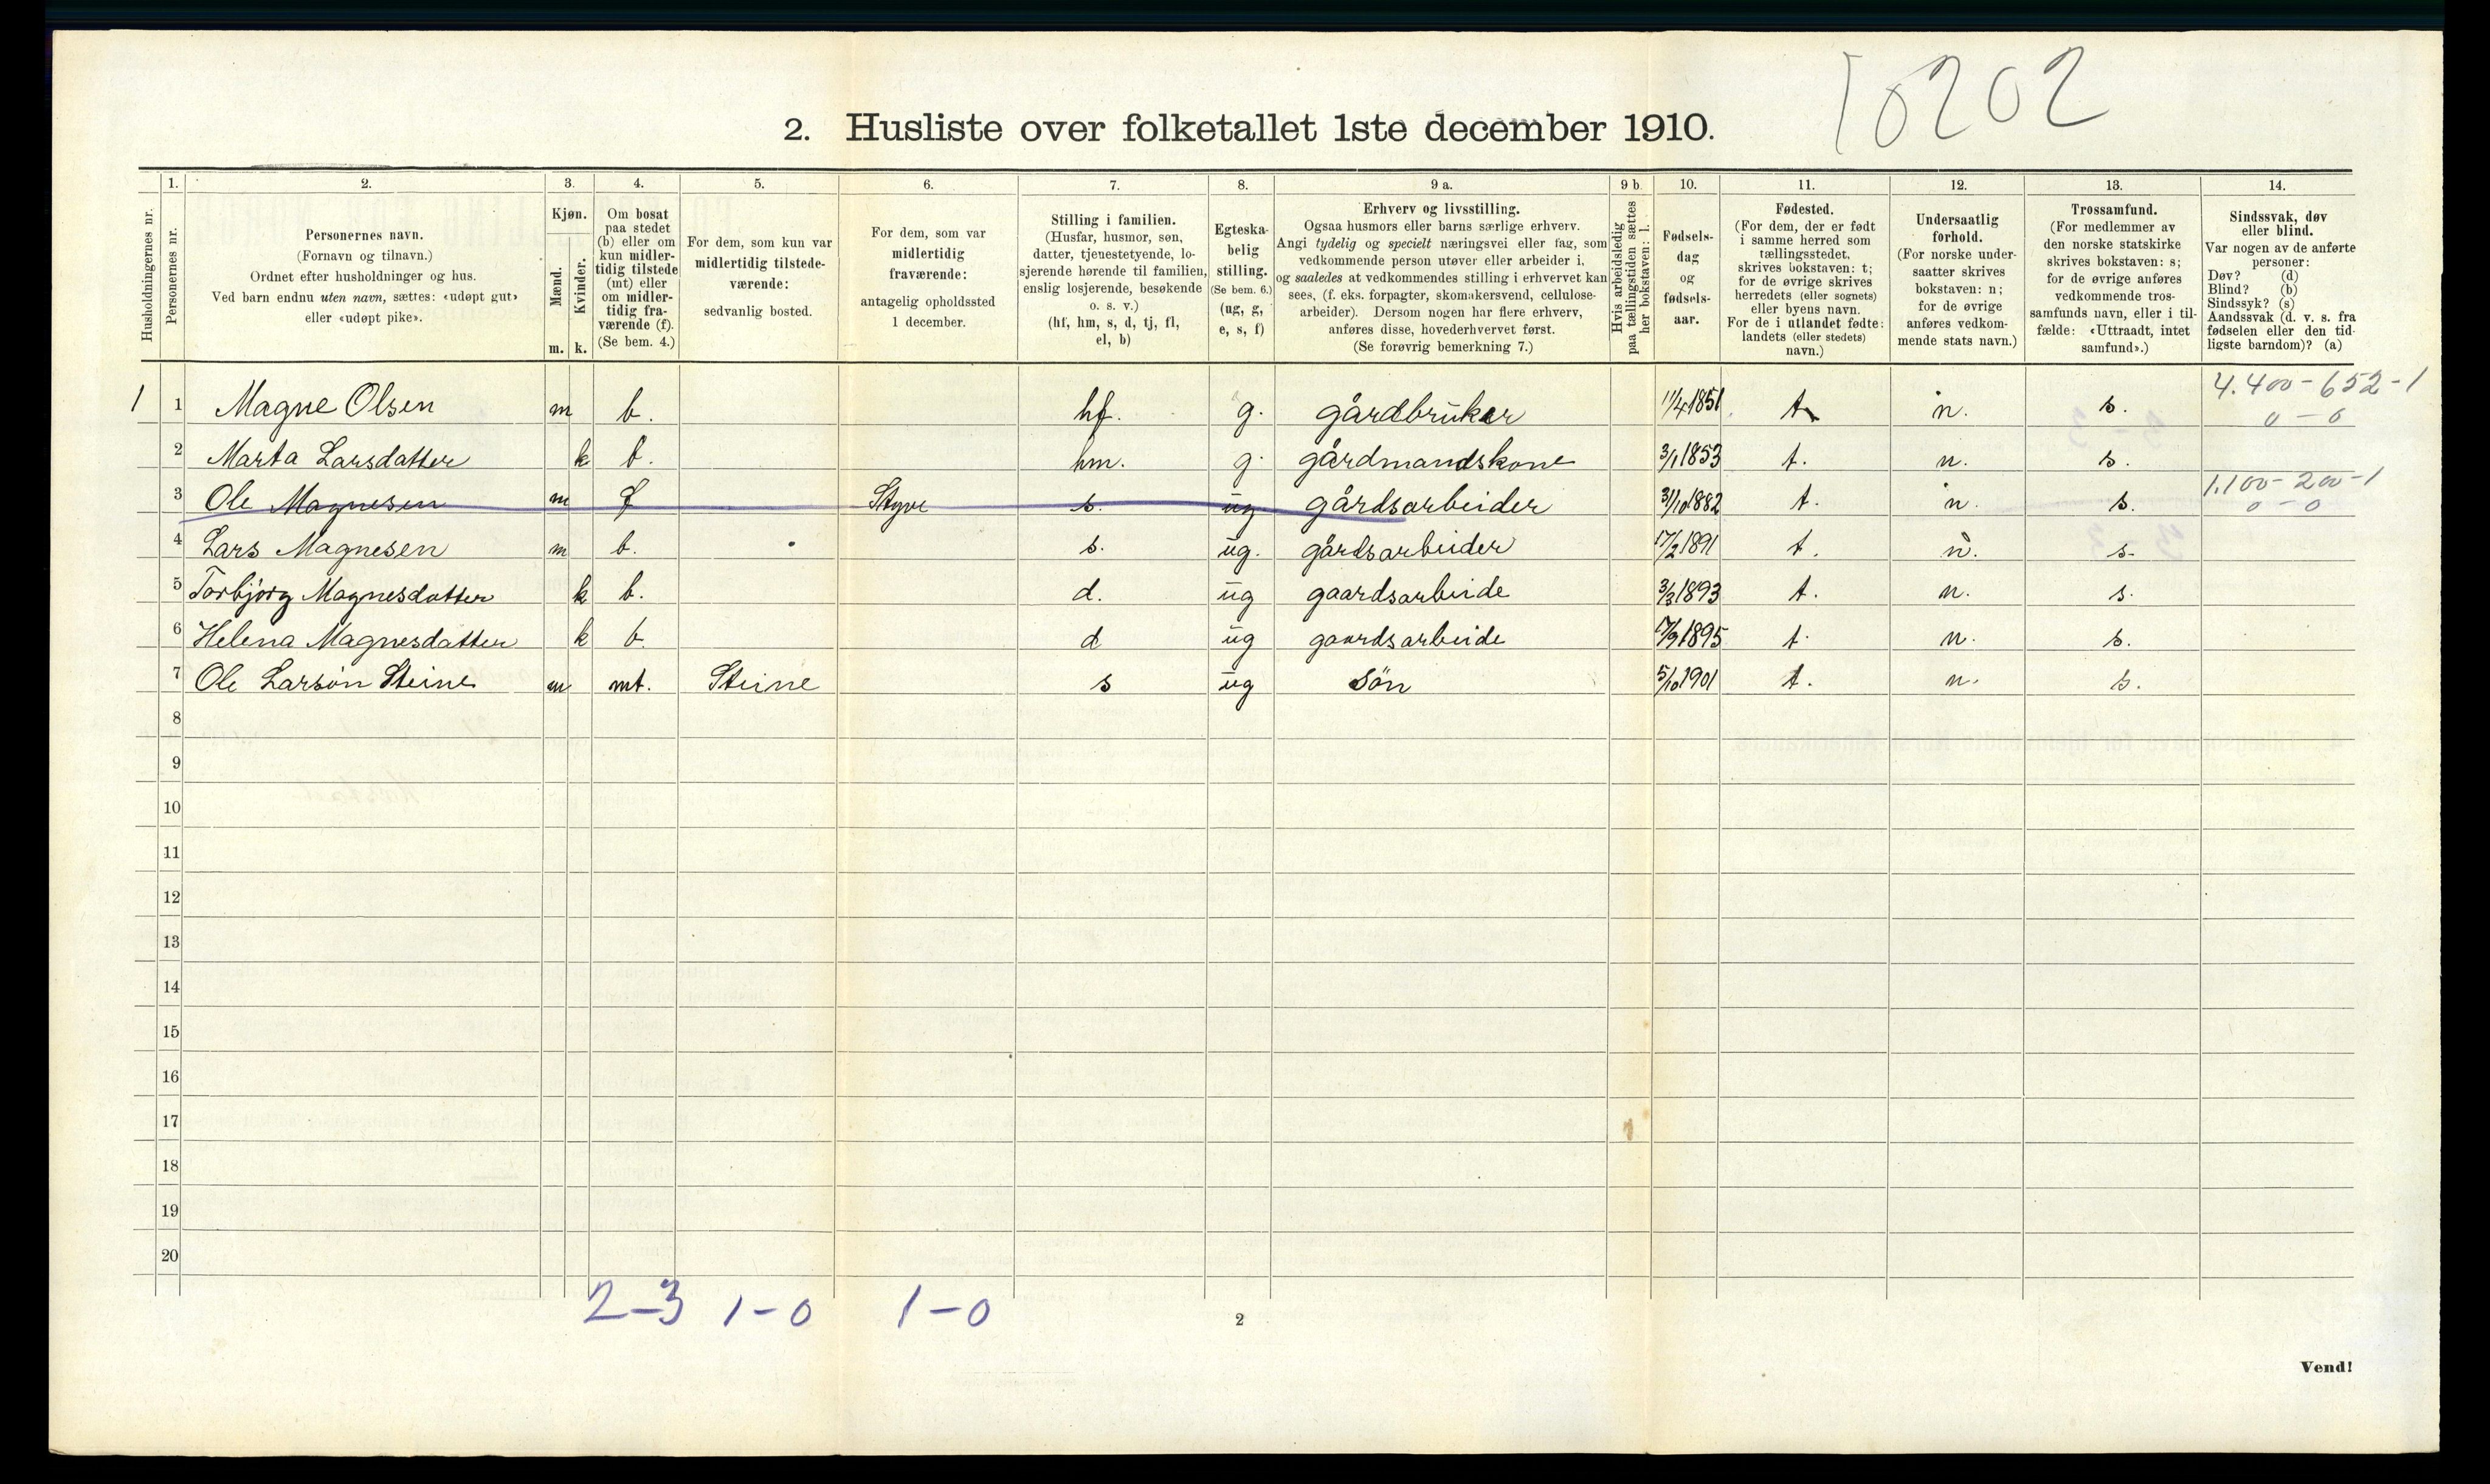 10202
2. Husliste over folketallet 1ste december 1910.
1. 2. 3. 4. 5. 6. 7. 8. 9 a. 9 b 10. 11. 12. 13. 14.
Husholdningernes nr.
Personernes nr.
Personernes navn.
(Fornavn og tilnavn.)
Ordnet efter husholdninger og hus.
Ved barn endnu uten navn, sættes: «udøpt gut»
eller «udøpt pike».
Kjøn.
Mænd.
Kvinder.
m. k.
Om bosat
paa stedet
(b) eller om
kun midler-
tidig tilstede
(mt) eller
om midler-
tidig fra-
værende (f).
(Se bem. 4.)
For dem, som kun var
midlertidig tilstede-
værende:
sedvanlig bosted.
For dem, som var
midlertidig
fraværende:
antagelig opholdssted
1 december.
Stilling i familien.
(Husfar, husmor, søn,
datter, tjenestetyende, lo-
sjerende hørende til familien,
enslig losjerende, besøkende
o. s. v.)
(hf, hm, s, d, tj, fl,
el, b)
Egteska-
belig
stilling.
(Se bem. 6.)
(ug, g,
e, s, f)
Erhverv og livsstilling.
Ogsaa husmors eller barns særlige erhverv.
Angi tydelig og specielt næringsvei eller fag, som
vedkommende person utøver eller arbeider i,
og saaledes at vedkommendes stilling i erhvervet kan
sees, (f. eks. forpagter, skomakersvend, cellulose-
arbeider). Dersom nogen har flere erhverv,
anføres disse, hovederhvervet først.
(Se forøvrig bemerkning 7.)
Hvis arbeidsledig
paa tællingstiden sættes
her bokstaven: l.
Fødsels-
dag
og
fødsels-
aar.
Fødested.
(For dem, der er født
i samme herred som
tællingsstedet,
skrives bokstaven: t;
for de øvrige skrives
herredets (eller sognets)
eller byens navn.
For de i utlandet fødte:
landets (eller stedets)
navn.)
Undersaatlig
forhold.
(For norske under-
saatter skrives
bokstaven: n;
for de øvrige
anføres vedkom-
mende stats navn.)
Trossamfund.
(For medlemmer av
den norske statskirke
skrives bokstaven: s;
for de øvrige anføres
vedkommende tros-
samfunds navn, eller i til-
fælde: «Uttraadt, intet
samfund».)
Sindssvak, døv
eller blind.
Var nogen av de anførte
personer:
Døv? (d)
Blind? (b)
Sindssyk? (s)
Aandssvak (d. v. s. fra
fødselen eller den tid-
ligste barndom)? (a)
1 1 Magne Olsen m b. hf. g. gårdbruker 11/4 1851 t n. s. 4.400-652-1
0-0
2 Marta Larsdatter k b. hm. g. gårdmandskone 3/1 1853 t. n. s.
3 Ole Magnesen m f Styve s. ug gårdsarbeider 3/10 1882 t. n. s. 1.100-200-1
0-0
4 Lars Magnesen m b. s. ug. gårdsarbeider 17/2 1891 t. n. s.
5 Torbjørg Magnesdatter k b. d. ug gaardsarbeide 3/3 1893 t. n. s.
6 Helena Magnesdatter k b. d ug gaardsarbeide 17/9 1895 t. n. s.
7 Ole Larsøn Steine m mt. Steine s ug søn 5/10 1901 t. n. s.
8
9
10
11
12
13
14
15
16
17
18
19
20
2-3 1-0 1-0
2
Vend!